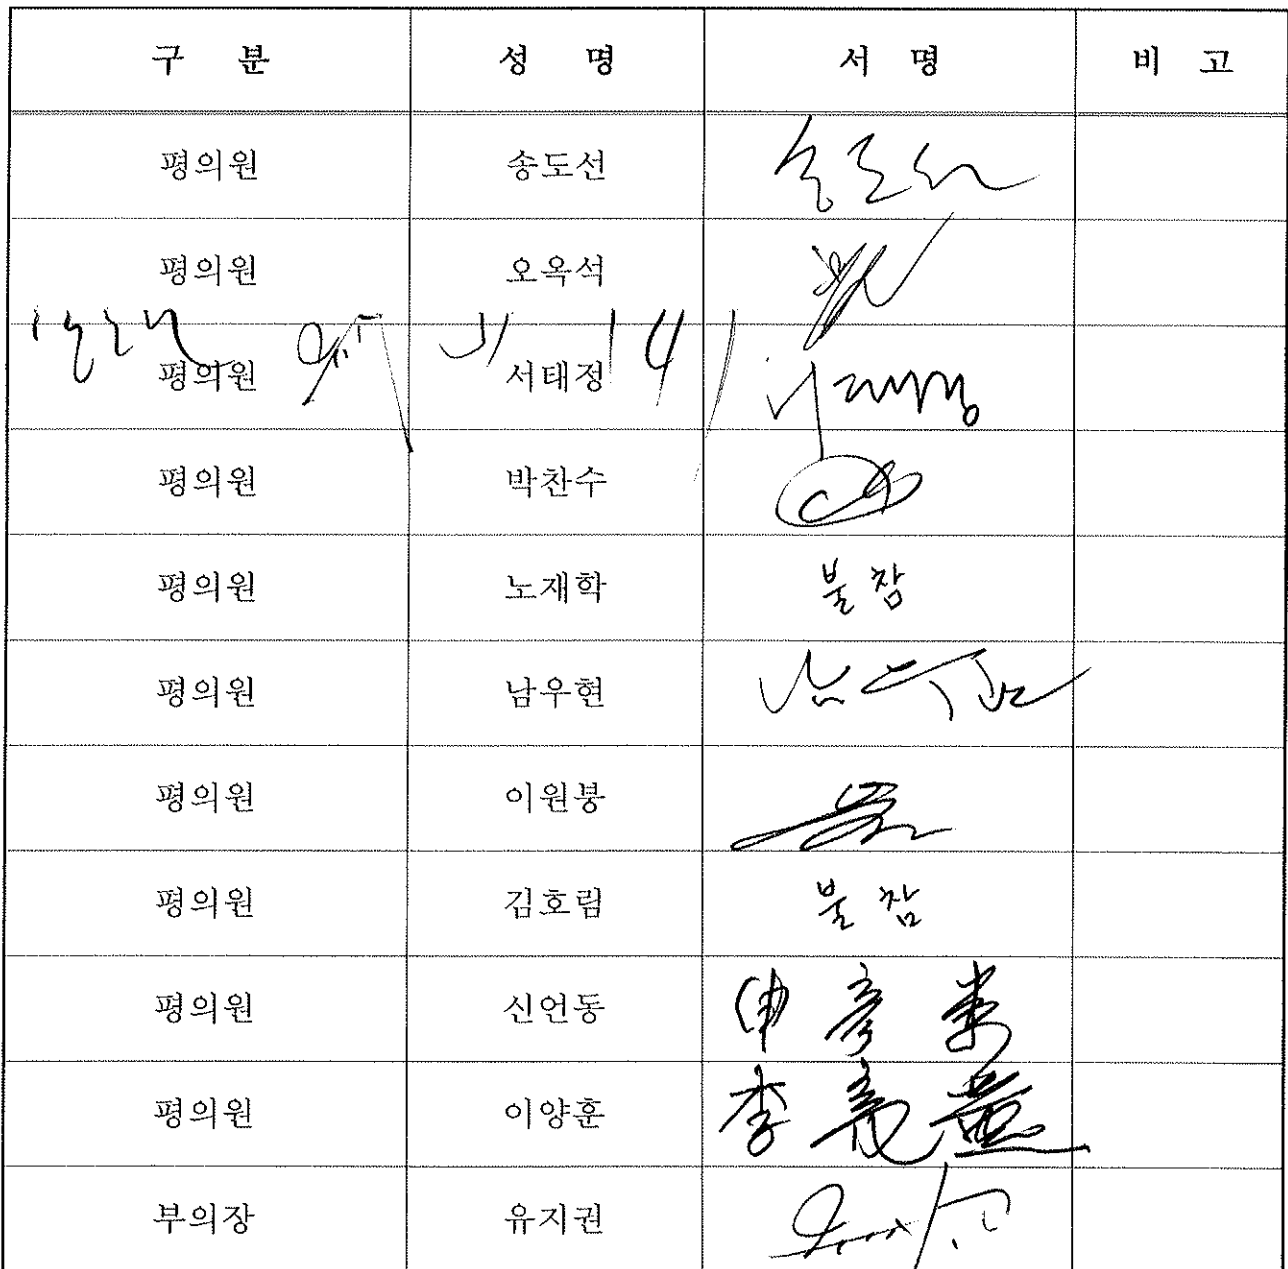 구 분 성 명 서 명 비 고
평의원 송도선 송도선
평의원 오옥석
평의원 서태정 서태정
평의원 박찬수
평의원 노재학 불참
평의원 남우현 남우현
평의원 이원붕
평의원 김호림 불참
평의원 신언동 申彦東
평의원 이양훈 李亮薰
부의장 유지권